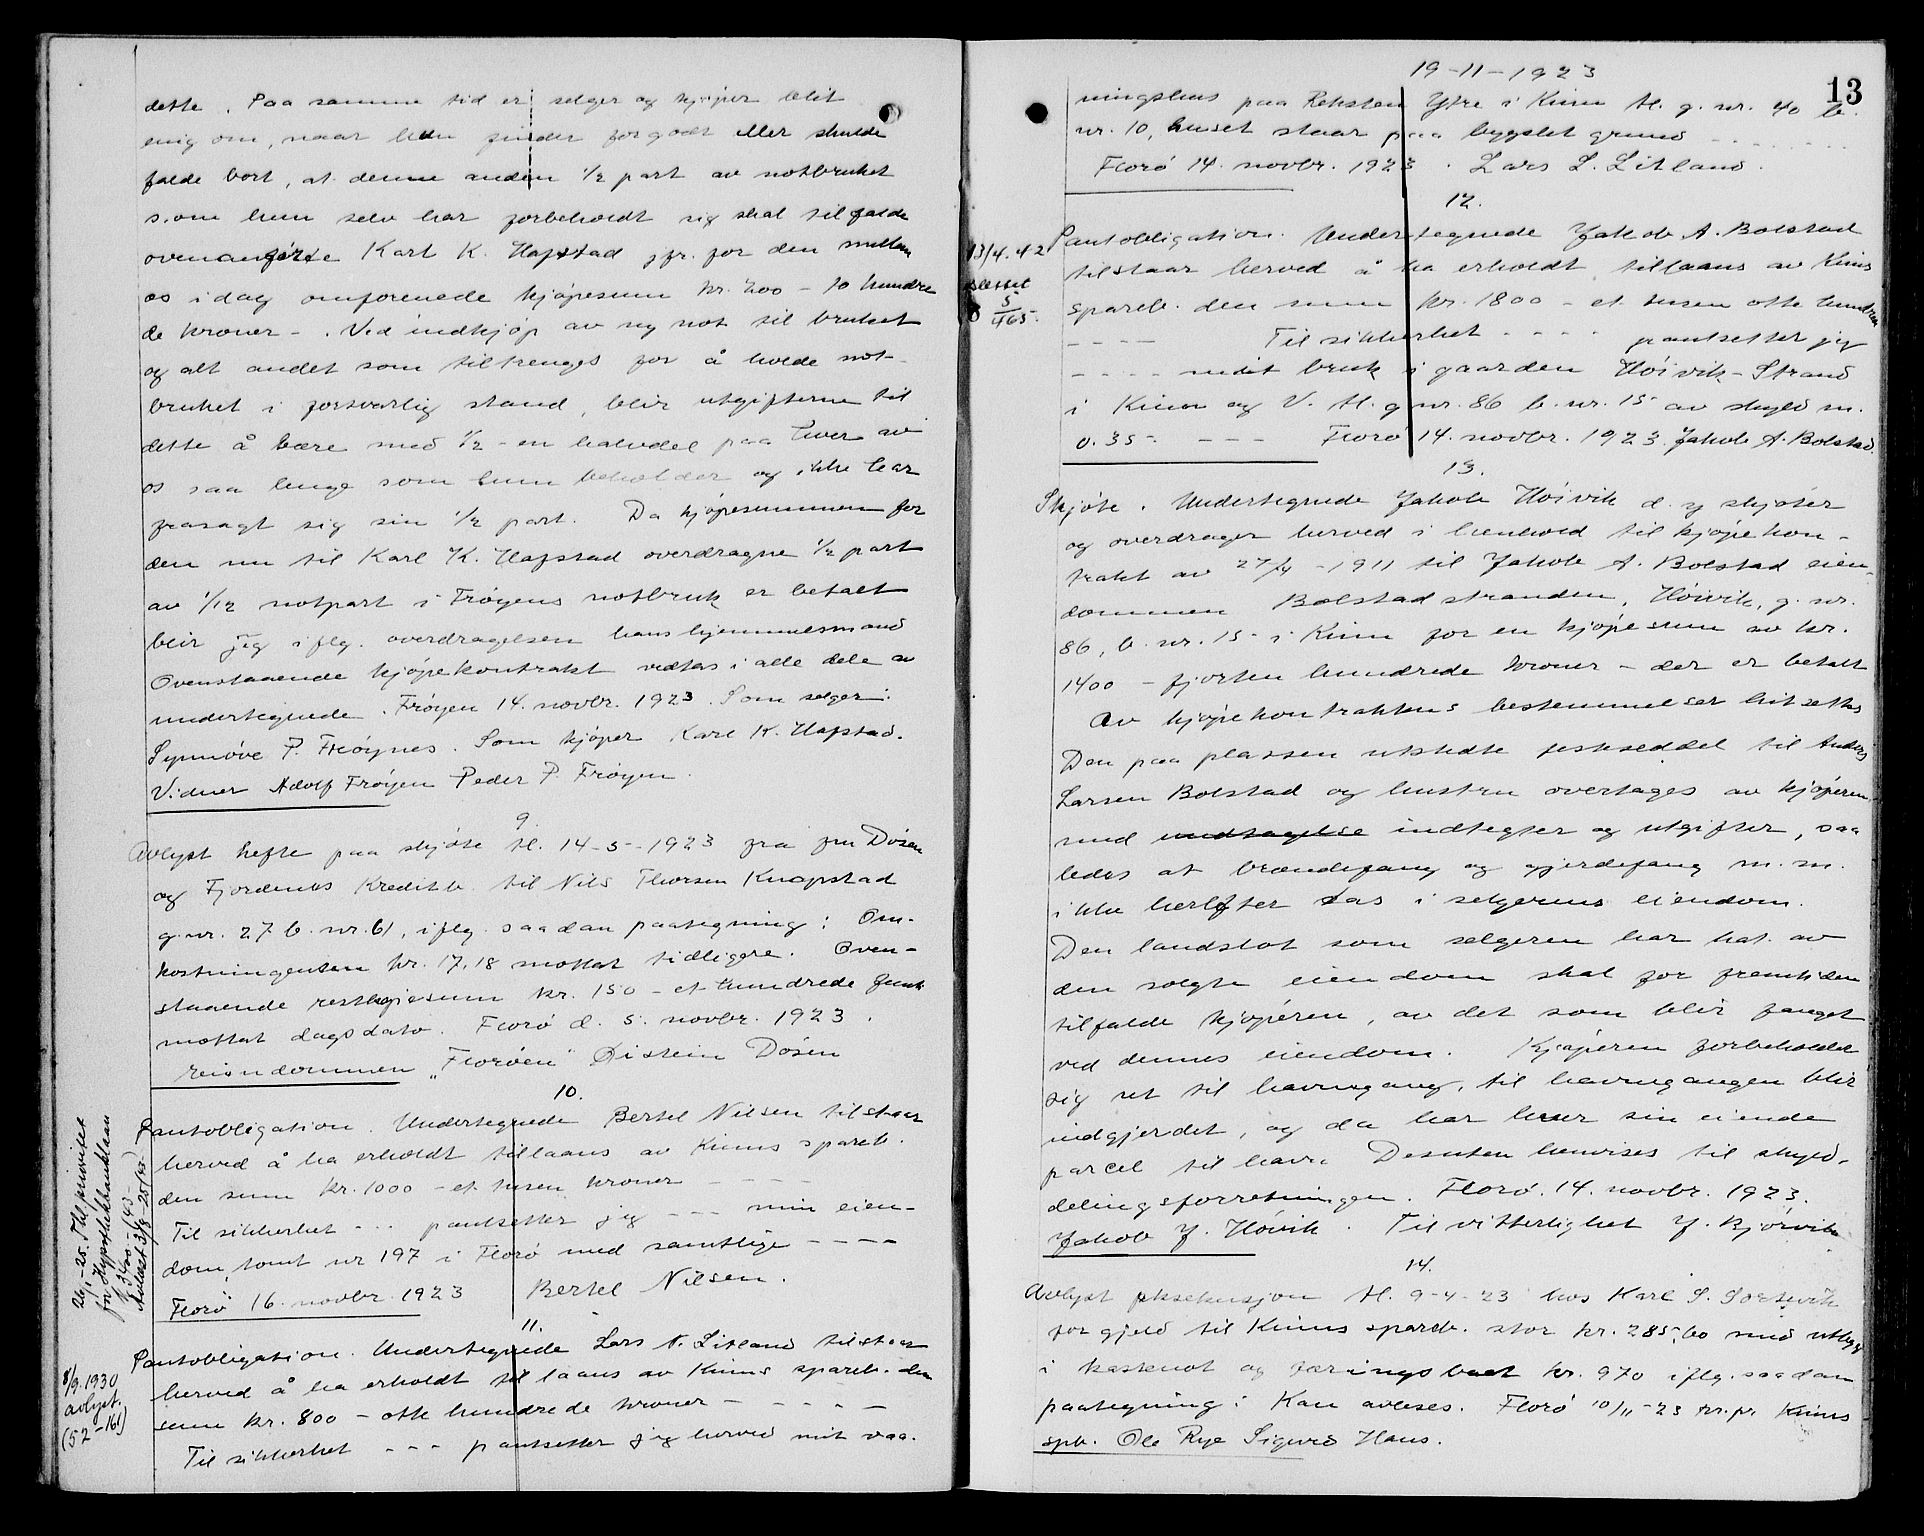 dette. Paa samme tid er selger og kjøper blit
enig om, naar hun finder forgodt eller skulde
falde bort, at denne anden 1/2 part av notbruket
som hun selv har forbeholdt sig skal tilfalde
ovenanførte Karl K. Hafstad jfr. for den mellem
os idag omforenede kjøpesum kr. 200 - to hundre
de kroner -. Ved indkjøp av ny not til bruket
og alt andet som tiltrenges for å holde not-
bruket i forsvarlig stand, blir utgifterne til
dette å bære med 1/2 - en halvdel paa hver av
os saa lenge som hun beholder og ikke har
frasagt sig sin 1/2 part. Da kjøpesummen for
den nu til Karl K. Hafstad overdragne 1/2 part
av 1/12 notpart i Frøyens notbruk er betalt
blir jeg iflg. overdragelsen hans hjemmelsmand
Ovenstaaende kjøpekontrakt vedtas i alle dele av
undertegnede. Frøyen 14. novbr. 1923. Som selger:
Synnøve P. Frøynes. Som kjøper Karl K. Hafstad.
Vidner Adolf Frøyen Peder P. Frøyen.
9.
Avlyst hefte paa skjøte tl. 14-5-1923 fra fru Døsen
og Fjordenes Kreditb. til Nils Thorsen Knapstad
g.nr. 27 b.nr. 61, iflg. saadan paategning: Om-
kostningen kr. 17,18 mottat tidligere. Oven-
staaende restkjøpesum kr. 150 - et hundrede femti
mottat dags dato. Florø d. 5. novbr. 1923.
eiendommen "Florøen" Øistein Døsen
10.
Pantobligation. Undertegnede Bertel Nilsen tilstaar
herved å ha erholdt tillaans av Kinns spareb.
den sum kr. 1000 - et tusen kroner - - - -
Til sikkerhet - - - pantsetter jeg - - - min eien-
dom, tomt nr 197 i Florø med samtlige - - - -
Florø 16. novbr. 1923 Bertel Nilsen.
26/1-25. Thl. prioritet
for Hypothekbanklaan
Avlæst 3/8-25
11.
Pantobligation. Undertegnede Lars N. Litland tilstaar
herved å ha erholdt til laans av Kinns spareb. den
sum kr. 800 - otte hundrede kroner - - - - -
Til sikkerhet - - - pantsetter jeg herved mit vaa-
8/9.1930
avlyst.
(52-161)
19-11-1923
13
ningshus paa Reksten Ytre i Kinn tl. g.nr. 40 b.
nr. 10, huset staar paa bygslet grund - - - - - - -
Florø 14. novbr. 1923. Lars L. Litland.
12.
Pantobligation. Undertegnede Jakob A. Bolstad
tilstaar herved å ha erholdt tillaans av Kinns
spareb. den sum kr. 1800 - et tusen otte hundrede
- - - - Til sikkerhet - - - - pantsetter jeg
- - - - mit bruk i gaarden Høivik-Strand
i Kinn og V. tl. g.nr. 86 b.nr. 15 av skyld m.
0.35 - - - - Florø 14. novbr. 1923. Jakob A. Bolstad.
13/4.42
slettet
8 5/465.
13.
Skjøte. Undertegnede Jakob Høivik d.y skjøter
og overdrager herved i henhold til kjøpekon-
trakt av 27/4-1911 til Jakob A. Bolstad eien-
dommen Bolstadstranden, Høivik, g.nr.
86, b.nr. 15 i Kinn for en kjøpesum av kr.
1400 - fjorten hundrede kroner - der er betalt
Av kjøpekontraktens bestemmelser hitsettes
Den paa plassen utstedte festeseddel til Anders
Larsen Bolstad og hustru overtages av kjøperen
med undtagelse indtegter og utgifter, saa
ledes at brændefang og gjerdefang m.m.
ikke herefter tas i selgerens eiendom.
Den landslot som selgeren har hat av
den solgte eiendom skal for fremtiden
tilfalde kjøperen, av det som blir fanget
ved dennes eiendom. Kjøperen forbeholder
sig ret til havnegang, til havnegangen blir
indgjerdet, og da har hver sin eiende
parcel til havn. Desuten henvises til skyld-
delingsforretningen. Florø. 14. novbr. 1923.
Jakob J. Høivik. Til vitterlighet J. Bjørvik
14.
Avlyst pkseksusjon tl. 9-4-23 hos Karl S. Sortevik
for gjeld til Kinns spareb. stor kr. 285,60 med utlegg
i kastenot og færingsbaat kr. 970 iflg. saadan
paategning: Kan avleses. Florø 10/11-23 pr. pr. Kinns
spb. Ole Rye Sigurd Haus.